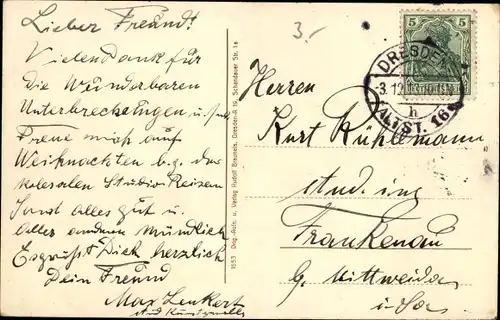 Lieber Freund!
Vielen Dank für
die wunderbaren
Unterbrechungen u.
Freue mich auf
Weihnachten
Studien Reisen
Sonst alles gut u.
alles andere mündlich
Es grüßt Dich herzlich
Dein Freund
Max Lenkert
3.-
1553 Orig.-Aufn. u. Verlag Rudolf Brauneis, Dresden-A 19, Schandauer Str. 1a
5 5
DRESDEN
-3.12
h
ALTST. 16
Herren
Kurt Rühlemann
stud. ing
Frankenau
b. Mittweida
i. Sa.